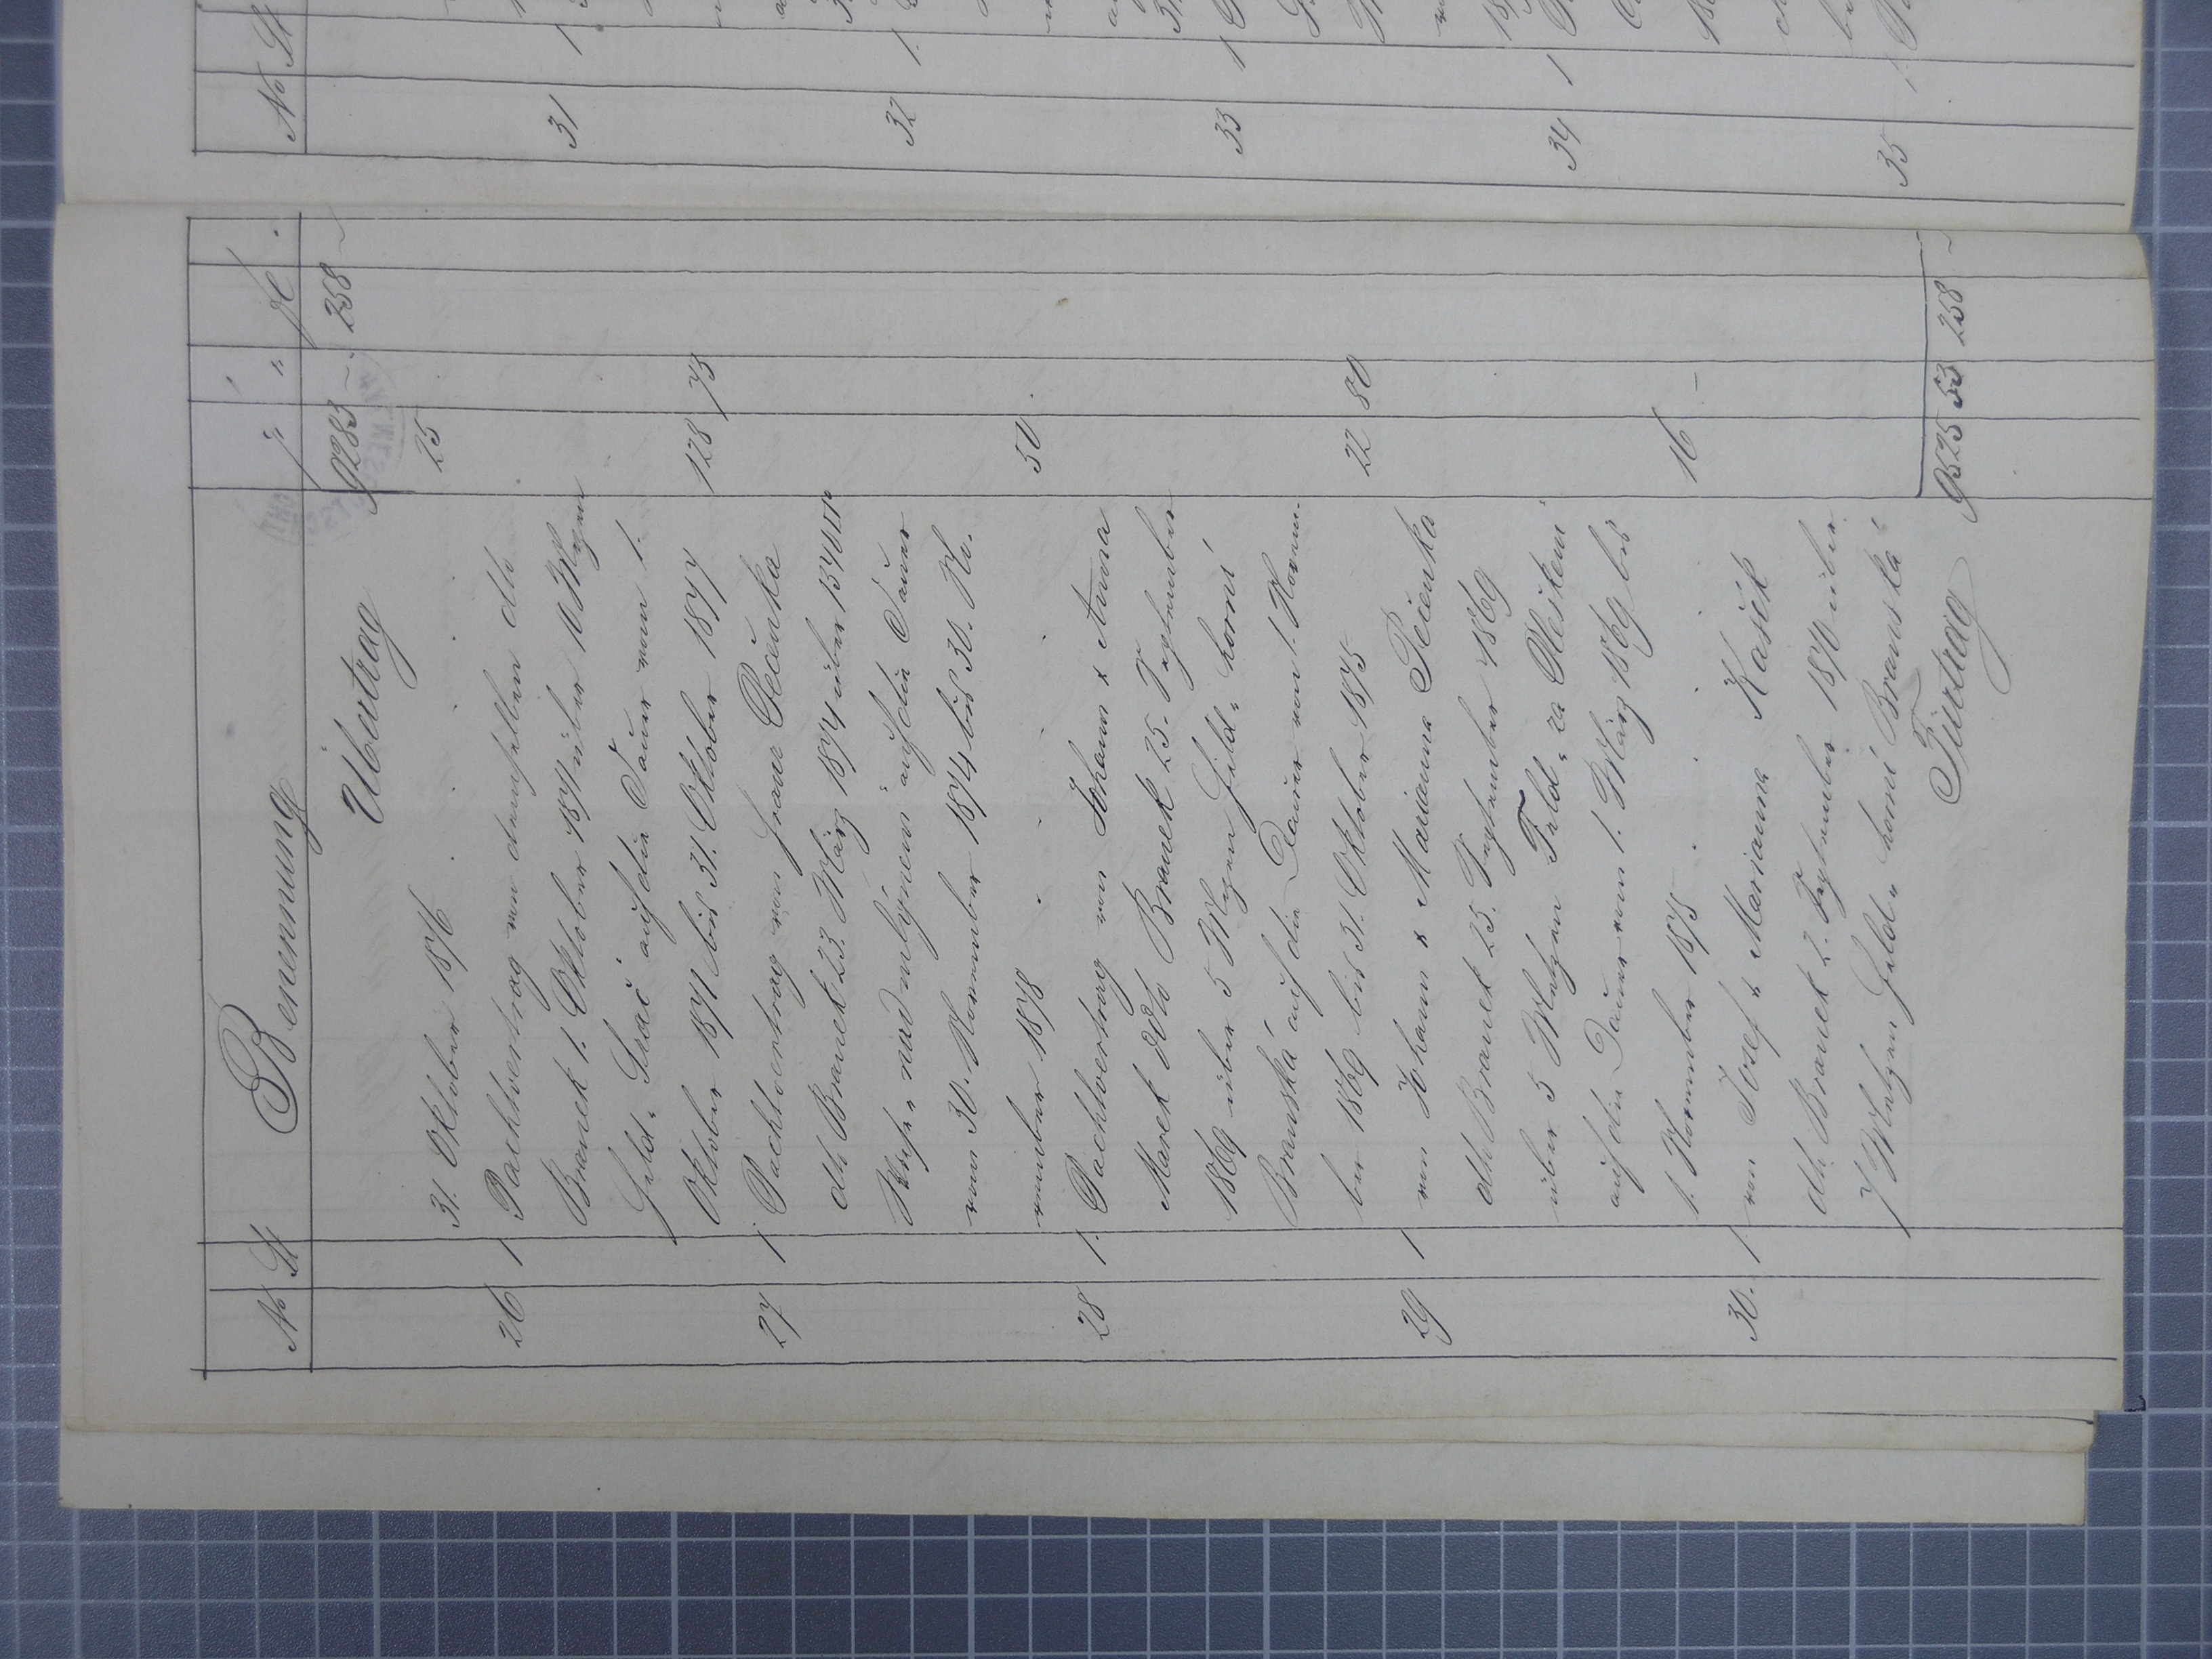 No St Benennung f " fl .
Übertrag 9283 - 258 -
31. Oktober 1876 . . . 25
26 1 Pachtvertrag von demselben dto
Branek 1. Oktober 1871 über 10 Metzen
Feld " auf die Dauer vom 1.
Oktober 1871 bis 31. Oktober 1877 128 73
27 1 Pachtvertrag von Franz Pečenka
dto Branek 23. März 1874 über 1340
Wiese " nad mlýnem " auf die Dauer
vom 30. November 1874 bis 30. No-
vember 1878 . . . 50 .
28 1. Pachtvertrag von Johann & Anna
Marek ddto Branek 25. September
1869 über 5 Metzen Feld " horní
Branská " auf die Dauer vom 1. Novem-
ber 1869 bis 31. Oktober 1875 22 80
29 1 von Johann & Marianna Pečenka
dto Branek 25. September 1869
über 5 Metzen Feld " za Pleškem "
auf die Dauer vom 1. März 1869 bis
1. November 1875 . . . 16 -
30. 1. von Josef & Marianna Kašík
dto Branek 2. September 1870 über
7 Metzen Feld " horní Branská "
Fürtrag 9525 53 258 -
No St
31 1
32 1.
33 1
34 1
35 1.